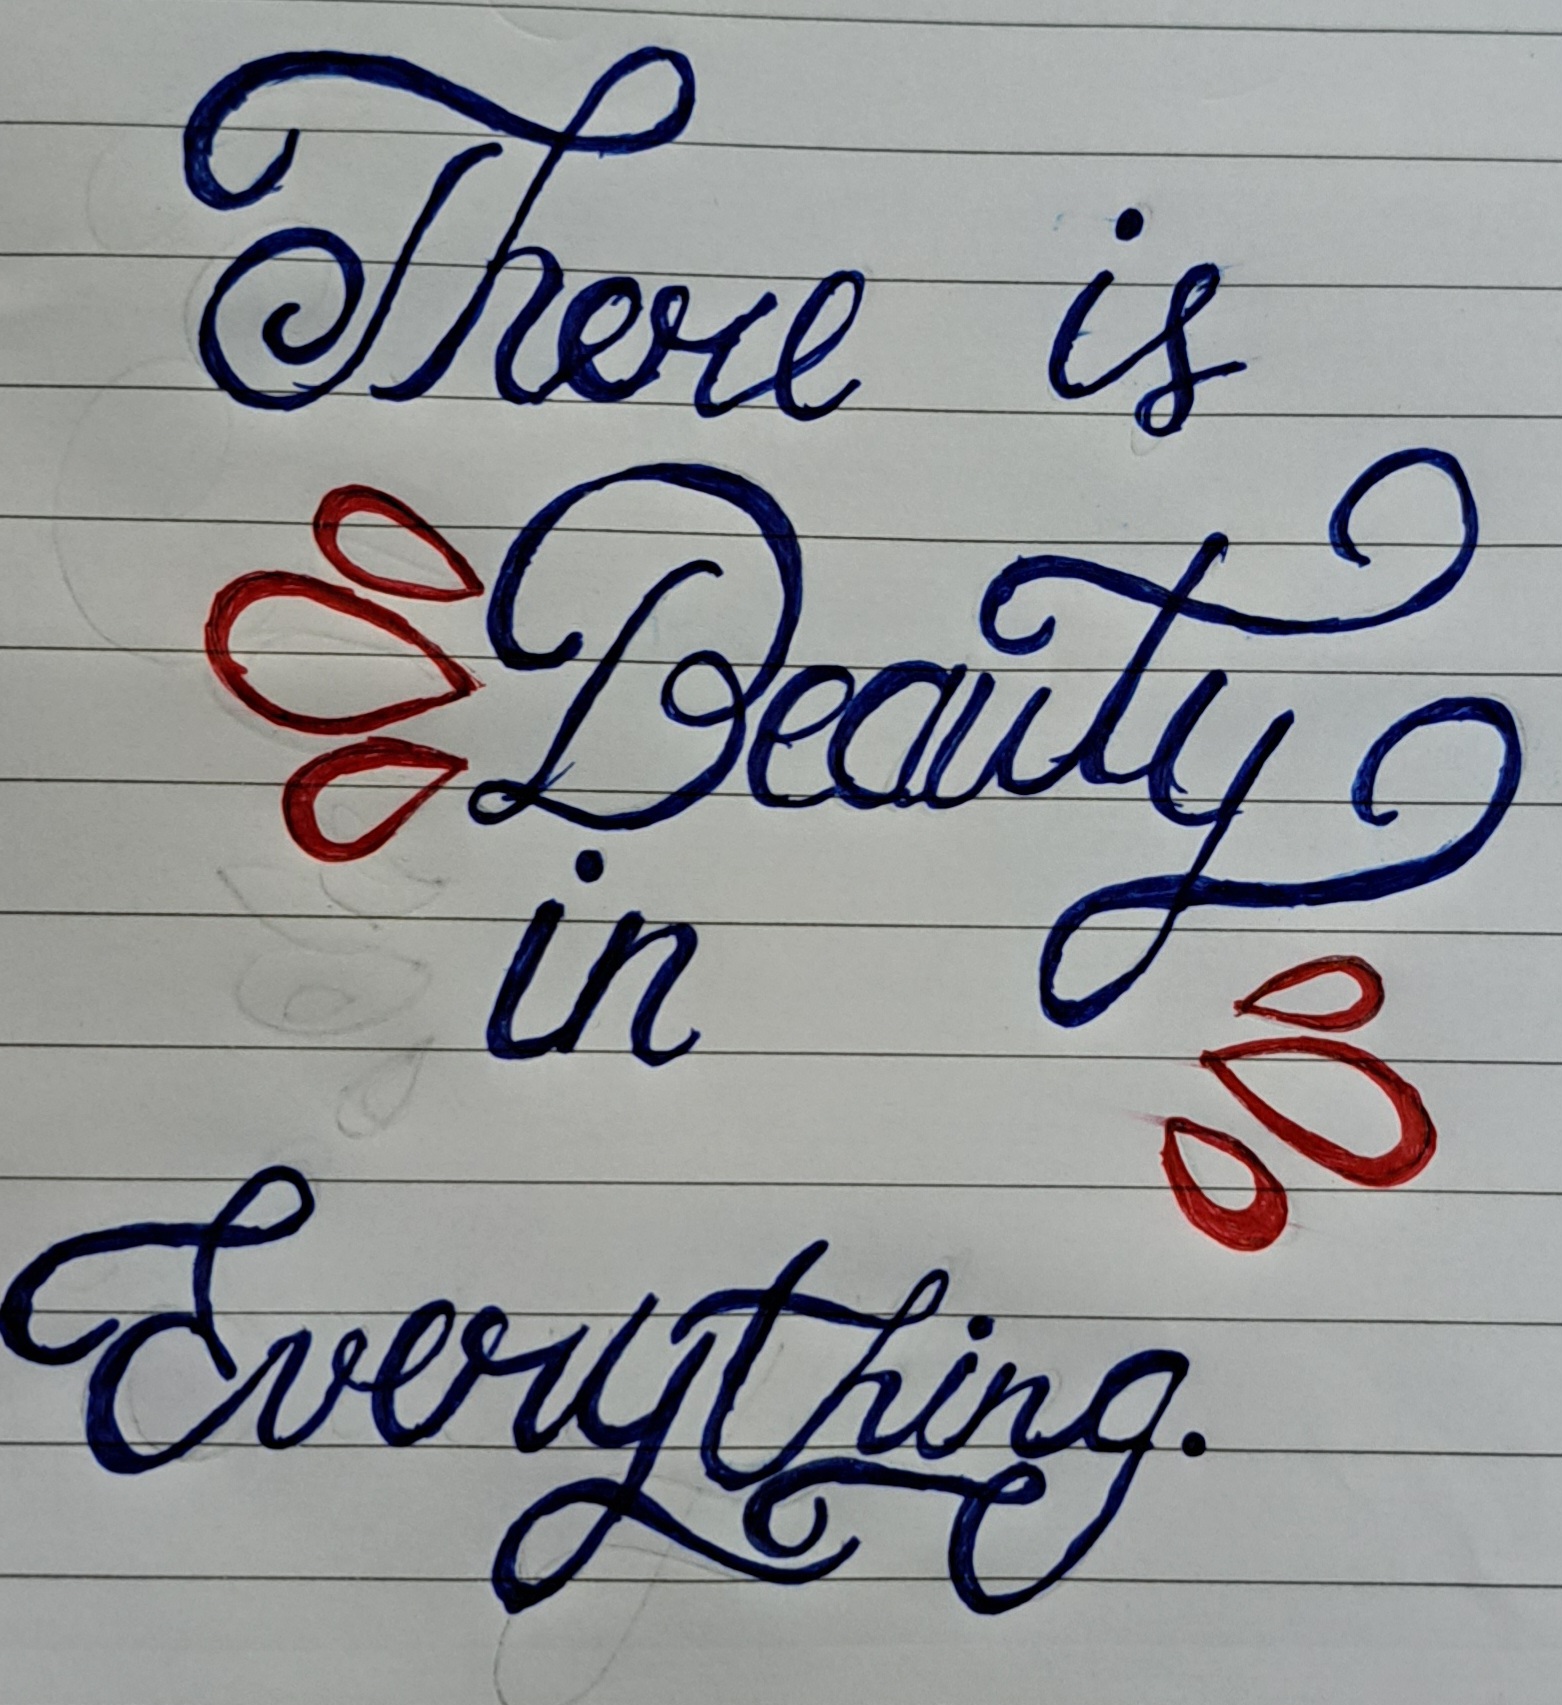 There is
Beauty
in
Everything.